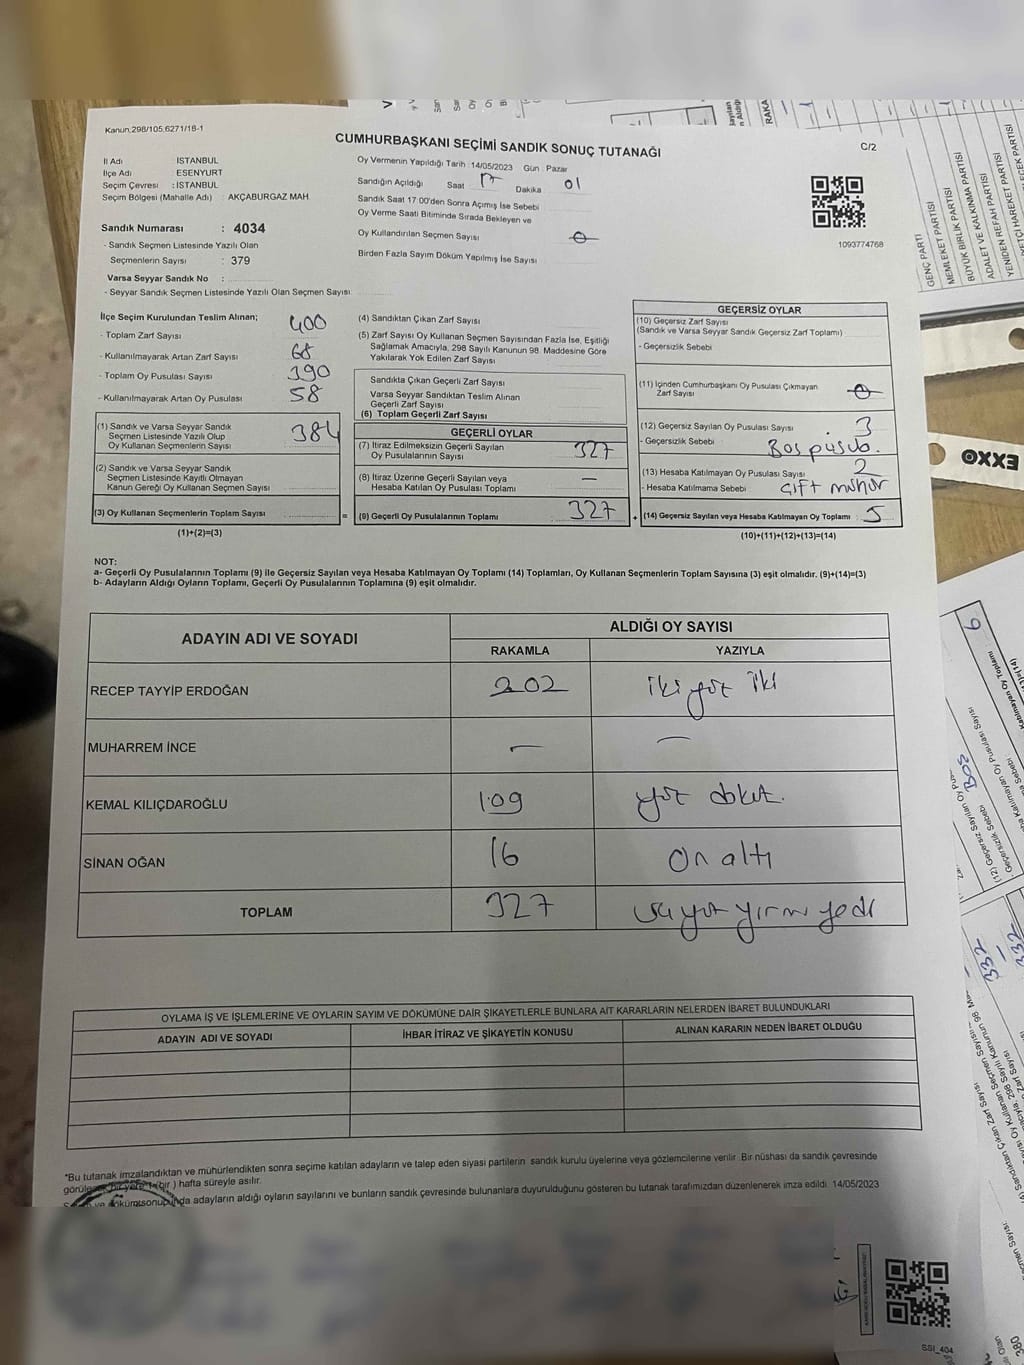 Kanun,298/105,6271/18-1
CUMHURBAŞKANI SEÇİMİ SANDIK SONUÇ TUTANAĞI
C/2
İl Adı İSTANBUL
İlçe Adı ESENYURT
Seçim Çevresi : İSTANBUL
Seçim Bölgesi (Mahalle Adı) : AKÇABURGAZ MAH.
Sandık Numarası : 4034
- Sandık Seçmen Listesinde Yazılı Olan
Seçmenlerin Sayısı : 379
Varsa Seyyar Sandık No :
- Seyyar Sandık Seçmen Listesinde Yazılı Olan Seçmen Sayısı
Oy Vermenin Yapıldığı Tarih : 14/05/2023 Gün : Pazar
Sandığın Açıldığı Saat 17 Dakika 01
Sandık Saat 17:00'den Sonra Açımış İse Sebebi
Oy Verme Saati Bitiminde Sırada Bekleyen ve
Oy Kullandırılan Seçmen Sayısı 0
Birden Fazla Sayım Döküm Yapılmış İse Sayısı
1093774768
İlçe Seçim Kurulundan Teslim Alınan;
- Toplam Zarf Sayısı 400
- Kullanılmayarak Artan Zarf Sayısı 68
- Toplam Oy Pusulası Sayısı 390
- Kullanılmayarak Artan Oy Pusulası 58
(1) Sandık ve Varsa Seyyar Sandık
Seçmen Listesinde Yazılı Olup
Oy Kullanan Seçmenlerin Sayısı 384
(2) Sandık ve Varsa Seyyar Sandık
Seçmen Listesinde Kayıtlı Olmayan
Kanun Gereği Oy Kullanan Seçmen Sayısı
(3) Oy Kullanan Seçmenlerin Toplam Sayısı
(1)+(2)=(3)
(4) Sandıktan Çıkan Zarf Sayısı
(5) Zarf Sayısı Oy Kullanan Seçmen Sayısından Fazla İse, Eşitliği
Sağlamak Amacıyla, 298 Sayılı Kanunun 98. Maddesine Göre
Yakılarak Yok Edilen Zarf Sayısı
Sandıkta Çıkan Geçerli Zarf Sayısı
Varsa Seyyar Sandıktan Teslim Alınan
Geçerli Zarf Sayısı
(6) Toplam Geçerli Zarf Sayısı
GEÇERLİ OYLAR
(7) İtiraz Edilmeksizin Geçerli Sayılan
Oy Pusulalarının Sayısı 327
(8) İtiraz Üzerine Geçerli Sayılan veya
Hesaba Katılan Oy Pusulası Toplamı —
= (9) Geçerli Oy Pusulalarının Toplamı 327
GEÇERSİZ OYLAR
(10) Geçersiz Zarf Sayısı
(Sandık ve Varsa Seyyar Sandık Geçersiz Zarf Toplamı)
- Geçersizlik Sebebi
(11) İçinden Cumhurbaşkanı Oy Pusulası Çıkmayan
Zarf Sayısı 0
(12) Geçersiz Sayılan Oy Pusulası Sayısı 3
- Geçersizlik Sebebi Boş pusula.
(13) Hesaba Katılmayan Oy Pusulası Sayısı 2
- Hesaba Katılmama Sebebi Çift mühür
+ (14) Geçersiz Sayılan veya Hesaba Katılmayan Oy Toplamı 5
(10)+(11)+(12)+(13)=(14)
NOT:
a- Geçerli Oy Pusulalarının Toplamı (9) ile Geçersiz Sayılan veya Hesaba Katılmayan Oy Toplamı (14) Toplamları, Oy Kullanan Seçmenlerin Toplam Sayısına (3) eşit olmalıdır. (9)+(14)=(3)
b- Adayların Aldığı Oyların Toplamı, Geçerli Oy Pusulalarının Toplamına (9) eşit olmalıdır.
ADAYIN ADI VE SOYADI
ALDIĞI OY SAYISI
RAKAMLA YAZIYLA
RECEP TAYYİP ERDOĞAN 202 iki yüz iki
MUHARREM İNCE — —
KEMAL KILIÇDAROĞLU 109 yüz dokuz.
SİNAN OĞAN 16 On altı
TOPLAM 327 üçyüz yirmi yedi
OYLAMA İŞ VE İŞLEMLERİNE VE OYLARIN SAYIM VE DÖKÜMÜNE DAİR ŞİKAYETLERLE BUNLARA AİT KARARLARIN NELERDEN İBARET BULUNDUKLARI
ADAYIN ADI VE SOYADI İHBAR İTİRAZ VE ŞİKAYETİN KONUSU ALINAN KARARIN NEDEN İBARET OLDUĞU
*Bu tutanak imzalandıktan ve mühürlendikten sonra seçime katılan adayların ve talep eden siyasi partilerin sandık kurulu üyelerine veya gözlemcilerine verilir. Bir nüshası da sandık çevresinde
bir yere 1 (bir) hafta süreyle asılır.
adayların aldığı oyların sayılarını ve bunların sandık çevresinde bulunanlara duyurulduğunu gösteren bu tutanak tarafımızdan düzenlenerek imza edildi. 14/05/2023
SSI_404
GENÇ PARTİ
MEMLEKET PARTİSİ
BÜYÜK BİRLİK PARTİSİ
ADALET VE KALKINMA PARTİSİ
YENİDEN REFAH PARTİSİ
HAREKET PARTİSİ
EXXO
6
332
332
380